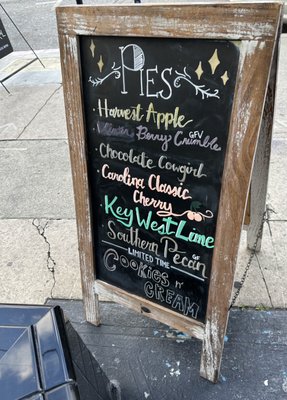 PIES
• Harvest Apple
• Winter Berry Crumble GFV
• Chocolate Cowgirl
• Carolina Classic
Cherry
• Key West Lime
• Southern Pecan GF
LIMITED TIME
• COOKIES N'
CREAM